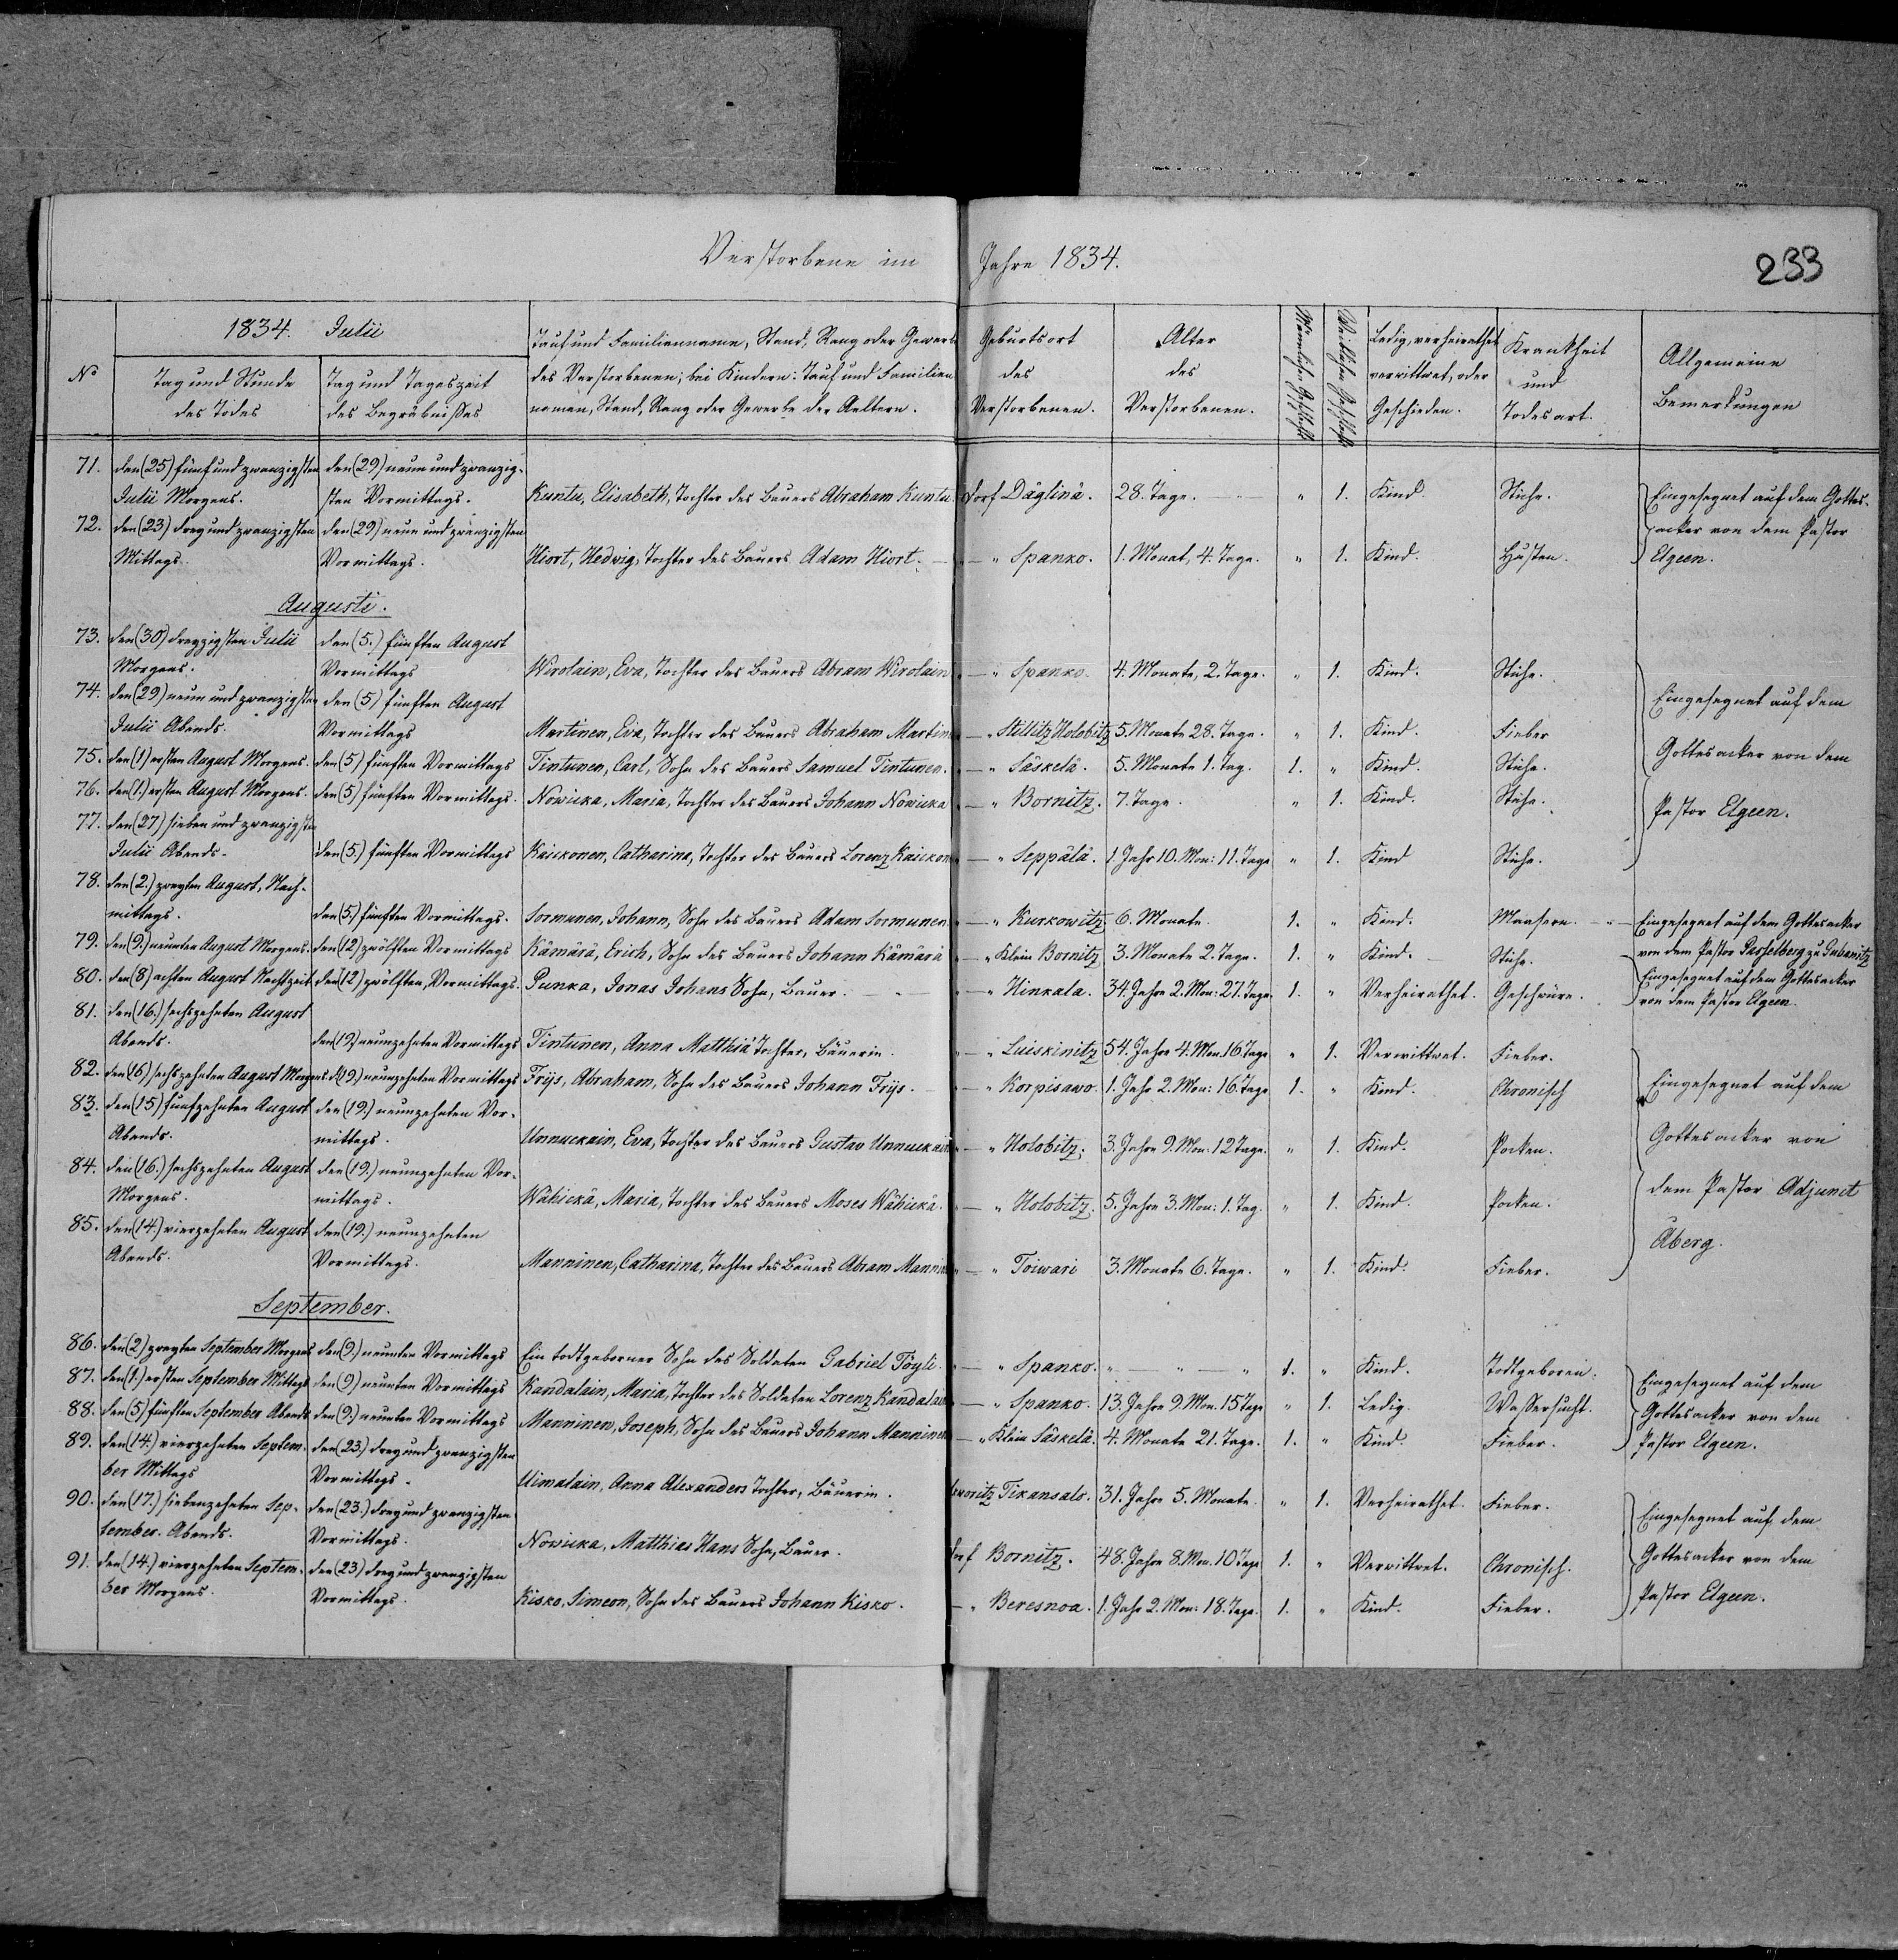 Verstorbene im Jahre 1834.
233
1834. Julii
No
Tag und Stunde des Todes
Tag und Tageszeit des Begräbnißes
Tauf und Familienname, Stand, Rang oder Gewerbe
des Verstorbenen; bei Kindern: Tauf und Familien
namen, Stand, Rang oder Gewerbe der Aeltern.
Geburtsort des Verstorbenen.
Alter des Verstorbenen.
Männlichen Geschlechts
Weiblichen Geschlechts
Ledig, verheirathet verwittwet, oder Geschieden.
Krankheit und Todesart.
Allgemeine Bemerkungen
71. den (25) fünf und zwanzigsten Julii Morgens. den (29) neun und zwanzigsten Vormittags. Kuntu, Elisabeth, Tochter des Bauers Abraham Kuntu. Dorf Däglinä. 28. Tage. " 1. Kind. Stiche.
72. den (23) drey und zwanzigsten Mittags. den (29) neun und zwanzigsten Vormittags. Hiort, Hedwig, Tochter des Bauers Adam Hiort. — " Spanko. 1. Monat, 4. Tage. " 1. Kind. Husten.
Eingesegnet auf dem Gottes-
acker von dem Pastor
Elgeen.
Augusti.
73. den (30) dreyzigsten Julii Morgens. den (5.) fünften August Vormittags Wirolain, Eva, Tochter des Bauers Abram Wirolain — " Spanko. 4. Monate, 2. Tage. " 1. Kind. Stiche.
74. den (29) neun und zwanzigsten Julii Abends. den (5) fünften August Vormittags Martinen, Eva, Tochter des Bauers Abraham Martin — " Stillitz Holobitz 5. Monate 28. Tage. " 1. Kind. Fieber
75. den (1) ersten August Morgens. den (5) fünften Vormittags Tintunen, Carl, Sohn des Bauers Samuel Tintunen. — " Säskelä. 5. Monate 1. Tag. 1. " Kind. Stiche.
76. den (1.) ersten August Morgens. den (5) fünften Vormittags. Nowicka, Maria, Tochter des Bauers Johann Nowicka — " Bornitz. 7. Tage. " 1. Kind. Stiche.
77. den (27) sieben und zwanzigsten Julii Abends. den (5.) fünften Vormittags Kaickonen, Catharina, Tochter des Bauers Lorenz Kaickon — " Seppälä. 1 Jahr 10. Mon: 11. Tage " 1. Kind Stiche.
Eingesegnet auf dem
Gottesacker von dem
Pastor Elgeen.
78. den (2.) zweyten August, Nachmittags. den (5.) fünften Vormittags. Sormunen, Johann, Sohn des Bauers Adam Sormunen — " Kurkowitz 6. Monate. 1. " Kind. Maasern. Eingesegnet auf dem Gottesacker
79. den (9.) neunten August Morgens. den (12) zwölften Vormittags Kämärä, Erich, Sohn des Bauers Johann Kämärä — " Klein Bornitz 3. Monate 2. Tage. 1. " Kind. Stiche. von dem Pastor zu Gubanitz
80. den (8) achten August Nachtzeit den (12) zwölften Vormittags. Punka, Jonas Johans Sohn, Bauer. — " Hinkala. 34. Jahre 2. Mon: 27. Tage. 1. " Verheirathet. Geschwüre. Eingesegnet auf dem Gottesacker
von dem Pastor Elgeen.
81. den (16.) sechszehnten August Abends. den (19) neunzehnten Vormittags Tintunen, Anna Matthiä Tochter, Bäuerin. — " Luiskinitz 54. Jahre 4. Mon. 16. Tage " 1. Verwittwet. Fieber.
82. den (16) sechszehnten August Morgens d. (19.) neunzehnten Vormittags Frijs, Abraham, Sohn des Bauers Johann Frijs. — " Korpisawo. 1. Jahr 2. Mon: 16. Tage 1. " Kind. Chronisch
83. den (15) fünfzehnten August Abends. den (19.) neunzehnten Vormittags. Unnuckain, Eva, Tochter des Bauers Gustav Unnuckain — " Holobitz. 3. Jahre 9. Mon: 12 Tage. " 1. Kind. Pocken.
84. den (16.) sechszehnten August Morgens. den (19.) neunzehnten Vormittags. Wähickä, Maria, Tochter des Bauers Moses Wähickä. — " Holobitz. 5. Jahre 3. Mon: 1. Tag. " 1. Kind. Pocken.
85. den (14) vierzehnten August Abends. den (19.) neunzehnten Vormittags. Manninen, Catharina, Tochter des Bauers Abram Mannin — " Toiwari 3. Monate 6. Tage. " 1. Kind. Fieber.
Eingesegnet auf dem
Gottesacker von
dem Pastor Adjunct
Åberg.
September.
86. den (2) zweyten September Morgens den (9.) neunten Vormittags Ein todtgeborner Sohn des Soldaten Gabriel Töyli. — " Spanko. " — " — " 1. " Kind. Todtgeboren.
87. den (1.) ersten September Mittags den (9.) neunten Vormittags Kandalain, Maria, Tochter des Soldaten Lorenz Kandalain — " Spanko. 13. Jahre 9. Mon. 15 Tage " 1. Ledig. Waßersucht.
88. den (5) fünften September Abends den (9.) neunten Vormittags Manninen, Joseph, Sohn des Bauers Johann Manninen — " Klein Säskelä. 4. Monate 21. Tage. 1. " Kind. Fieber.
Eingesegnet auf dem
Gottesacker von dem
Pastor Elgeen.
89. den (14.) vierzehnten September Mittags den (23.) drey und zwanzigsten Vormittags. Uimalain, Anna Alexanders Tochter, Bäuerin. Tikansalo. 31. Jahre 5. Monate. " 1. Verheirathet. Fieber.
90. den (17.) siebenzehnten September. Abends. den (23.) drey und zwanzigsten Vormittags. Nowicka, Matthias Hans Sohn, Bauer. Dorf Bornitz. 48. Jahre 8. Mon. 10 Tage 1. " Verwittwet. Chronisch.
91. den (14.) vierzehnten September Morgens. den (23) drey und zwanzigsten Vormittags. Kisko, Simeon, Sohn des Bauers Johann Kisko. — " Beresnoa. 1. Jahr 2. Mon: 18. Tage. 1. " Kind. Fieber.
Eingesegnet auf dem
Gottesacker von dem
Pastor Elgeen.